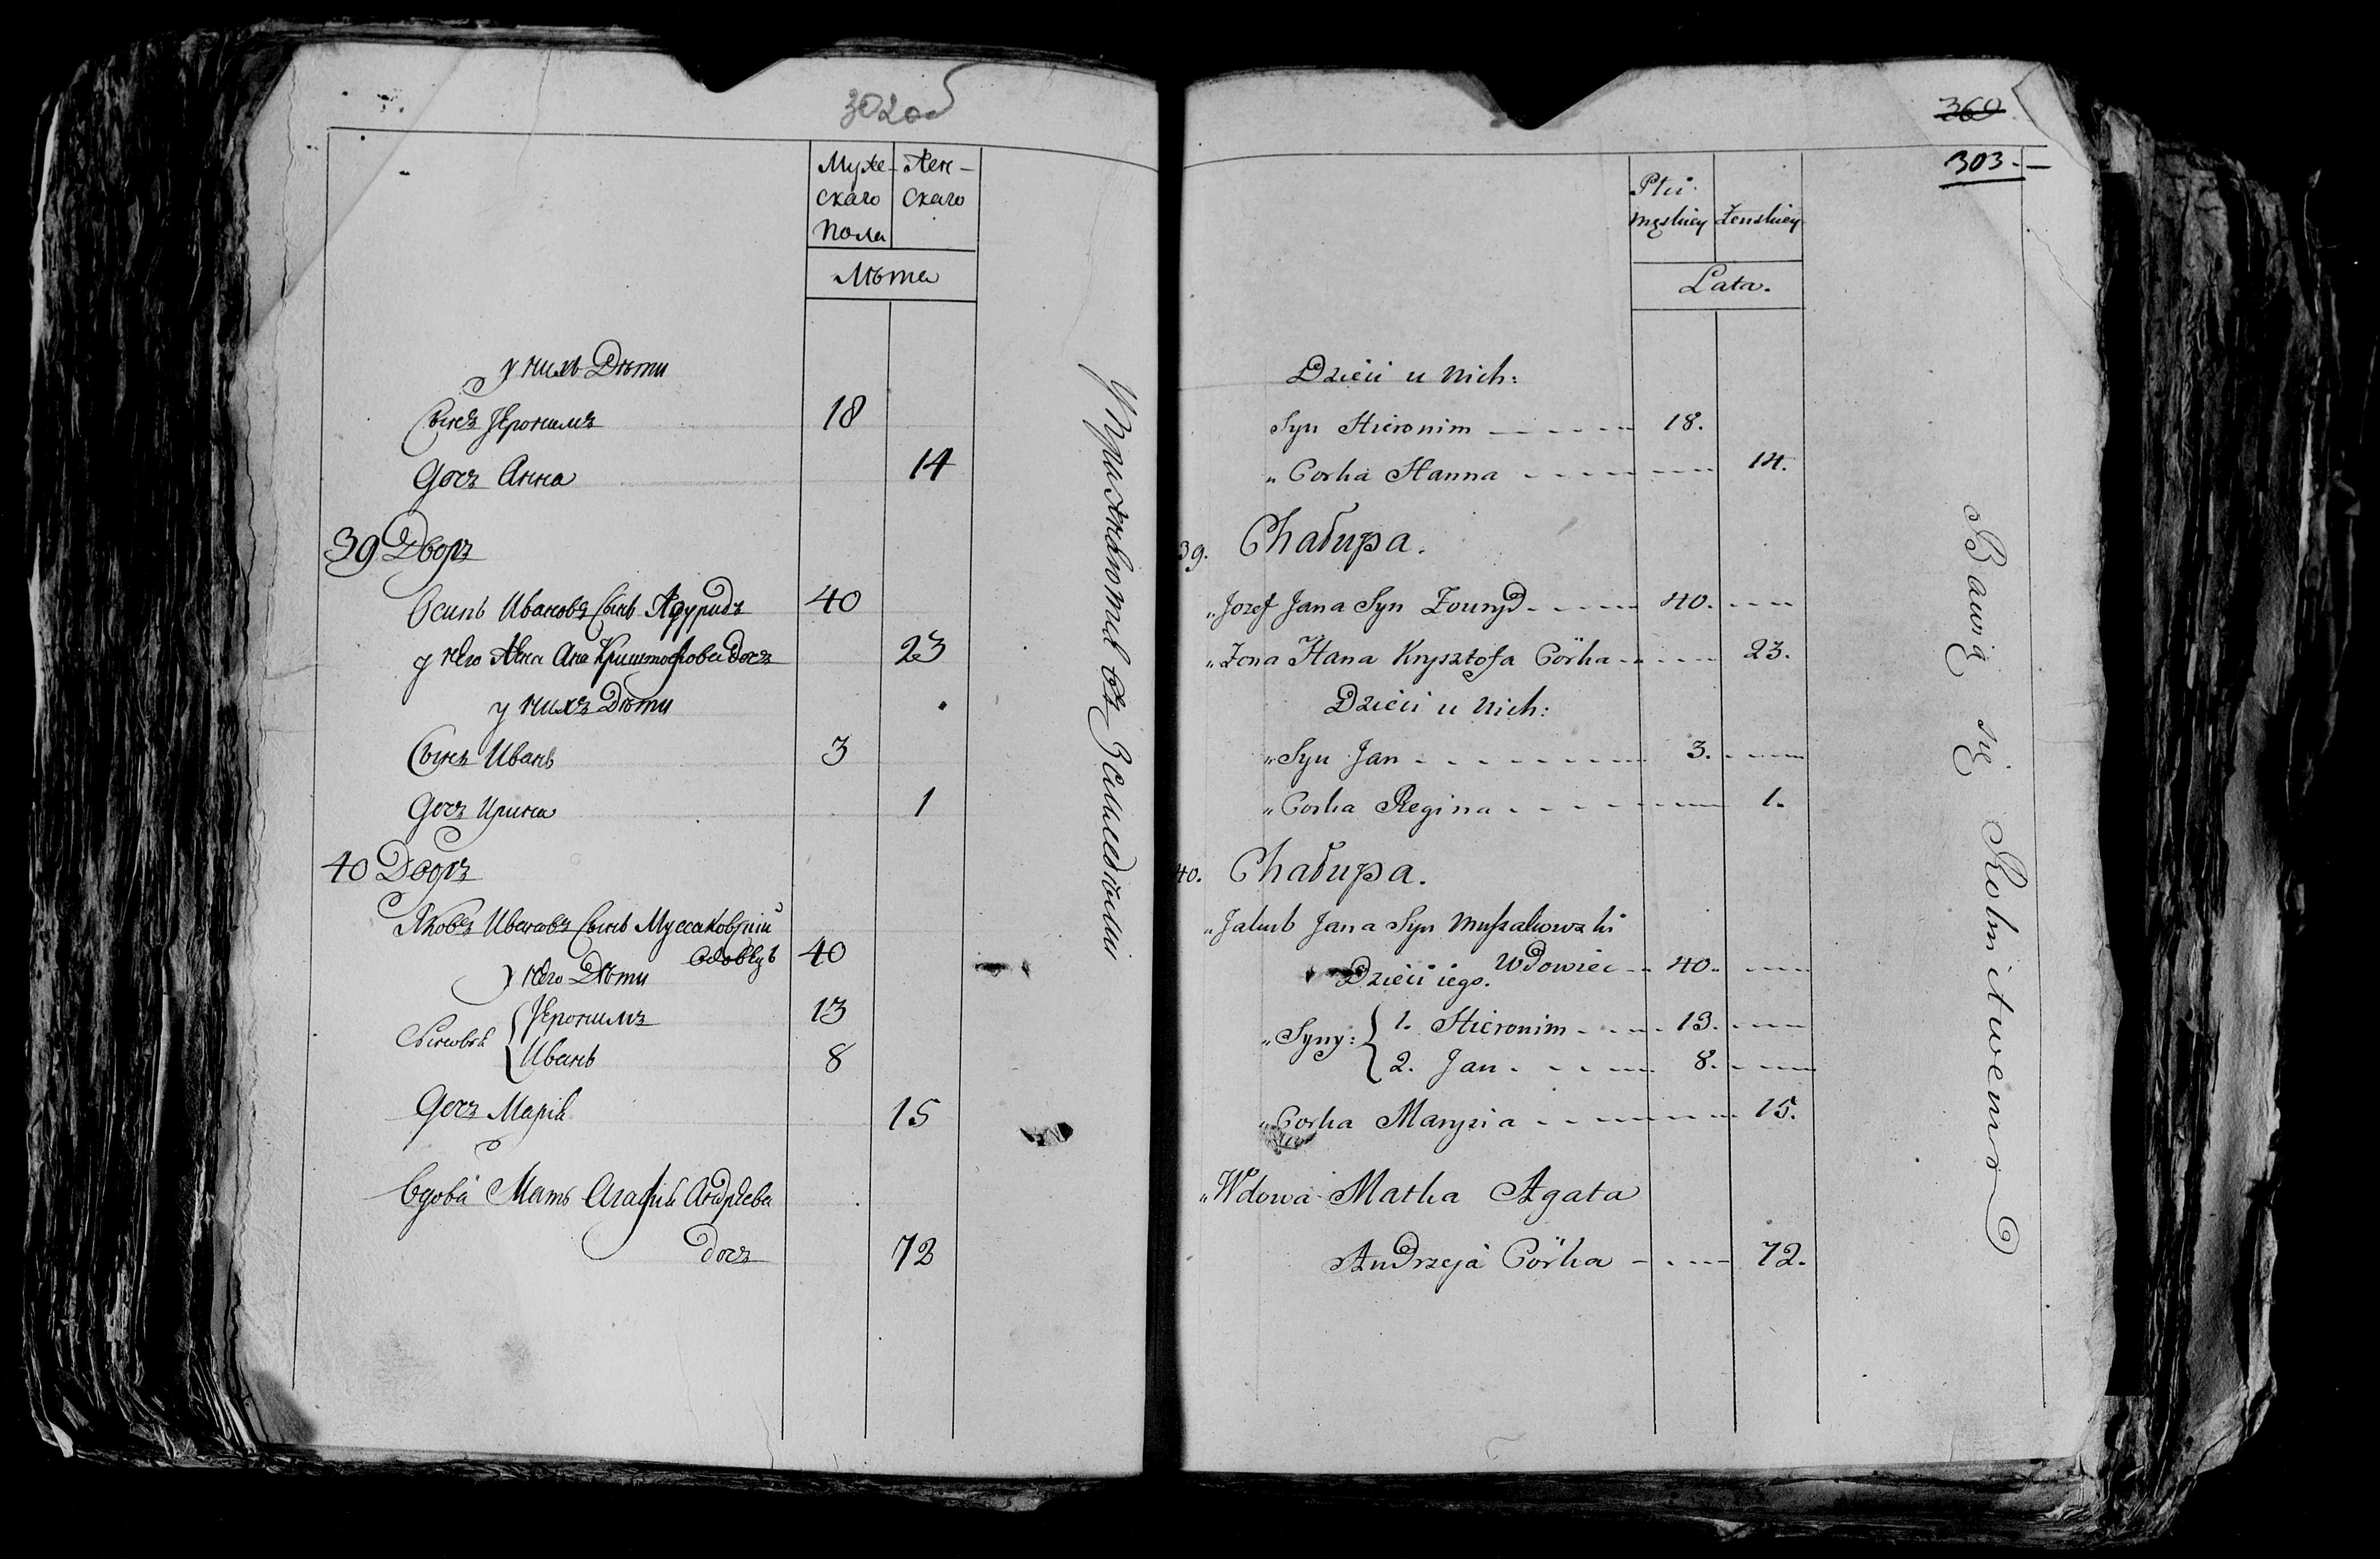 302об
Муже- Жен-
скаго скаго
пола
Лѣта
у нихъ Дѣти
Сынъ Іеронимъ 18
Дочь Анна 14
39 Дворъ
Осипъ Ивановъ Сынъ 40
у него Жена Ана Криштофова Дочь 23
у нихъ Дѣти
Сынъ Иванъ 3
Дочь Ирина 1
40 Дворъ
Яковъ Ивановъ Сынъ Муссаковскій
вдовецъ 40
у него Дѣти
Сыновья { Іеронимъ 13
Иванъ 8
Дочь Марія 15
Вдова Мать Агафія Андрѣева
Дочь 72
Упражняются въ Земледѣліи
360
303.
Płci
męskiey Żenskiey
Lata.
Dzieci u Nich:
Syn Hieronim 18.
„ Corka Hanna 14.
39. Chałupa.
„Jozef Jana Syn 40.
„Żona Hana Krysztofa Córka 23.
Dzieci u Nich:
„Syn Jan 3.
„Corka Regina 1.
40. Chałupa.
„Jakub Jana Syn Mussakowski
Wdowiec 40.
Dzieci iego.
„Syny: { 1. Hieronim 13.
2. Jan 8.
„Corka Marysia 15.
„Wdowa Matka Agata
Andrzeja Córka 72.
Bawią się Rolnictwem